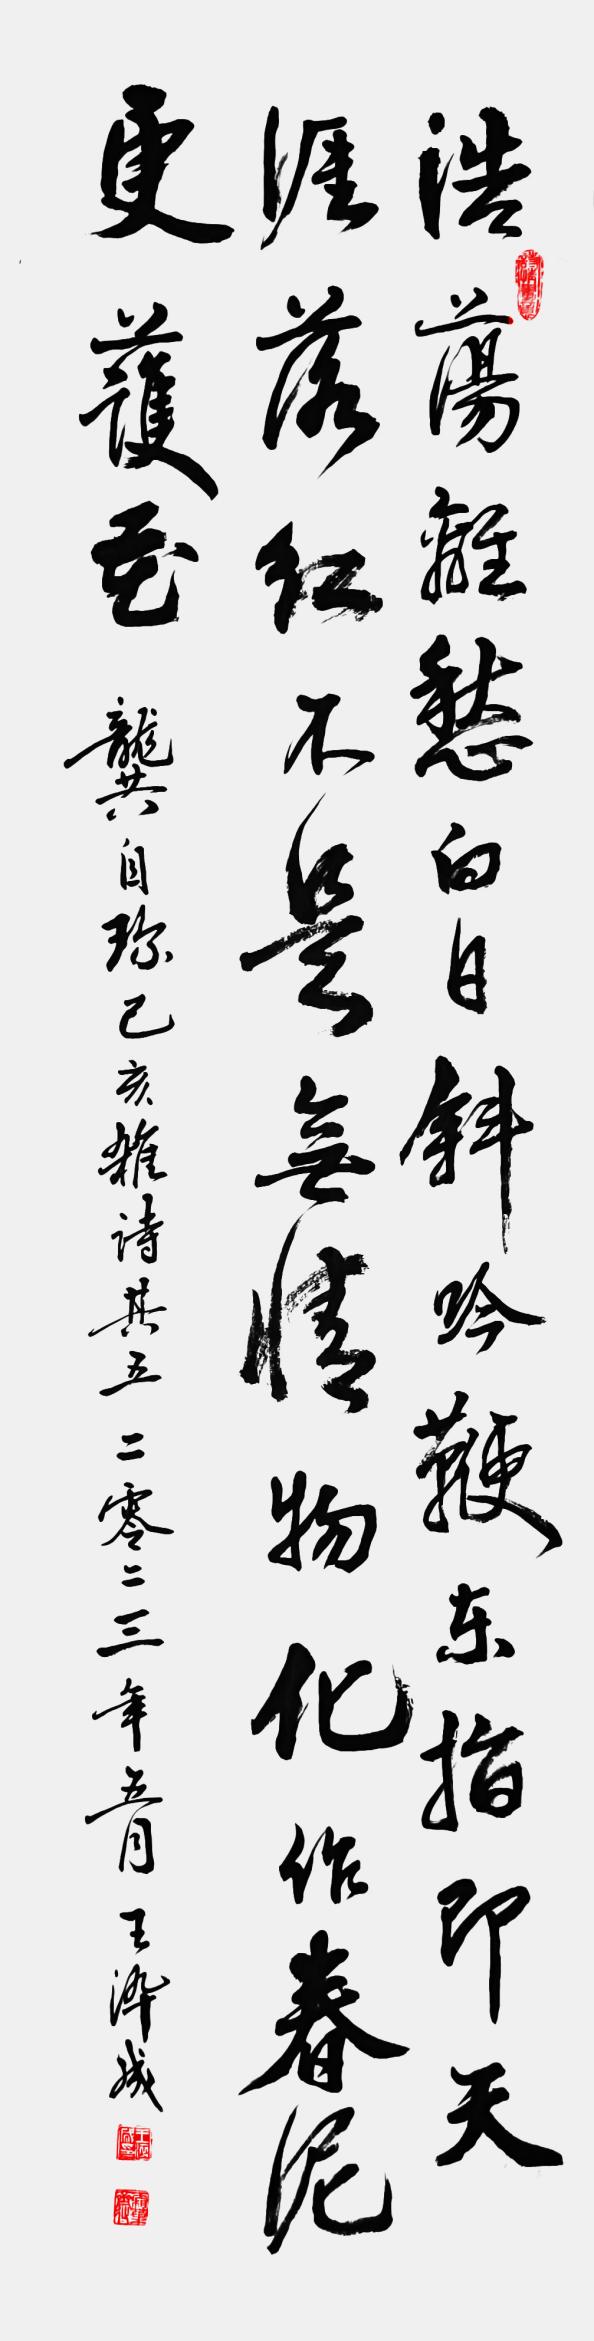 浩蕩離愁白日斜吟鞭东指即天
涯落红不是無情物化作春泥
更護花 龔自珍己亥雜詩其五 二零二三年五月 王